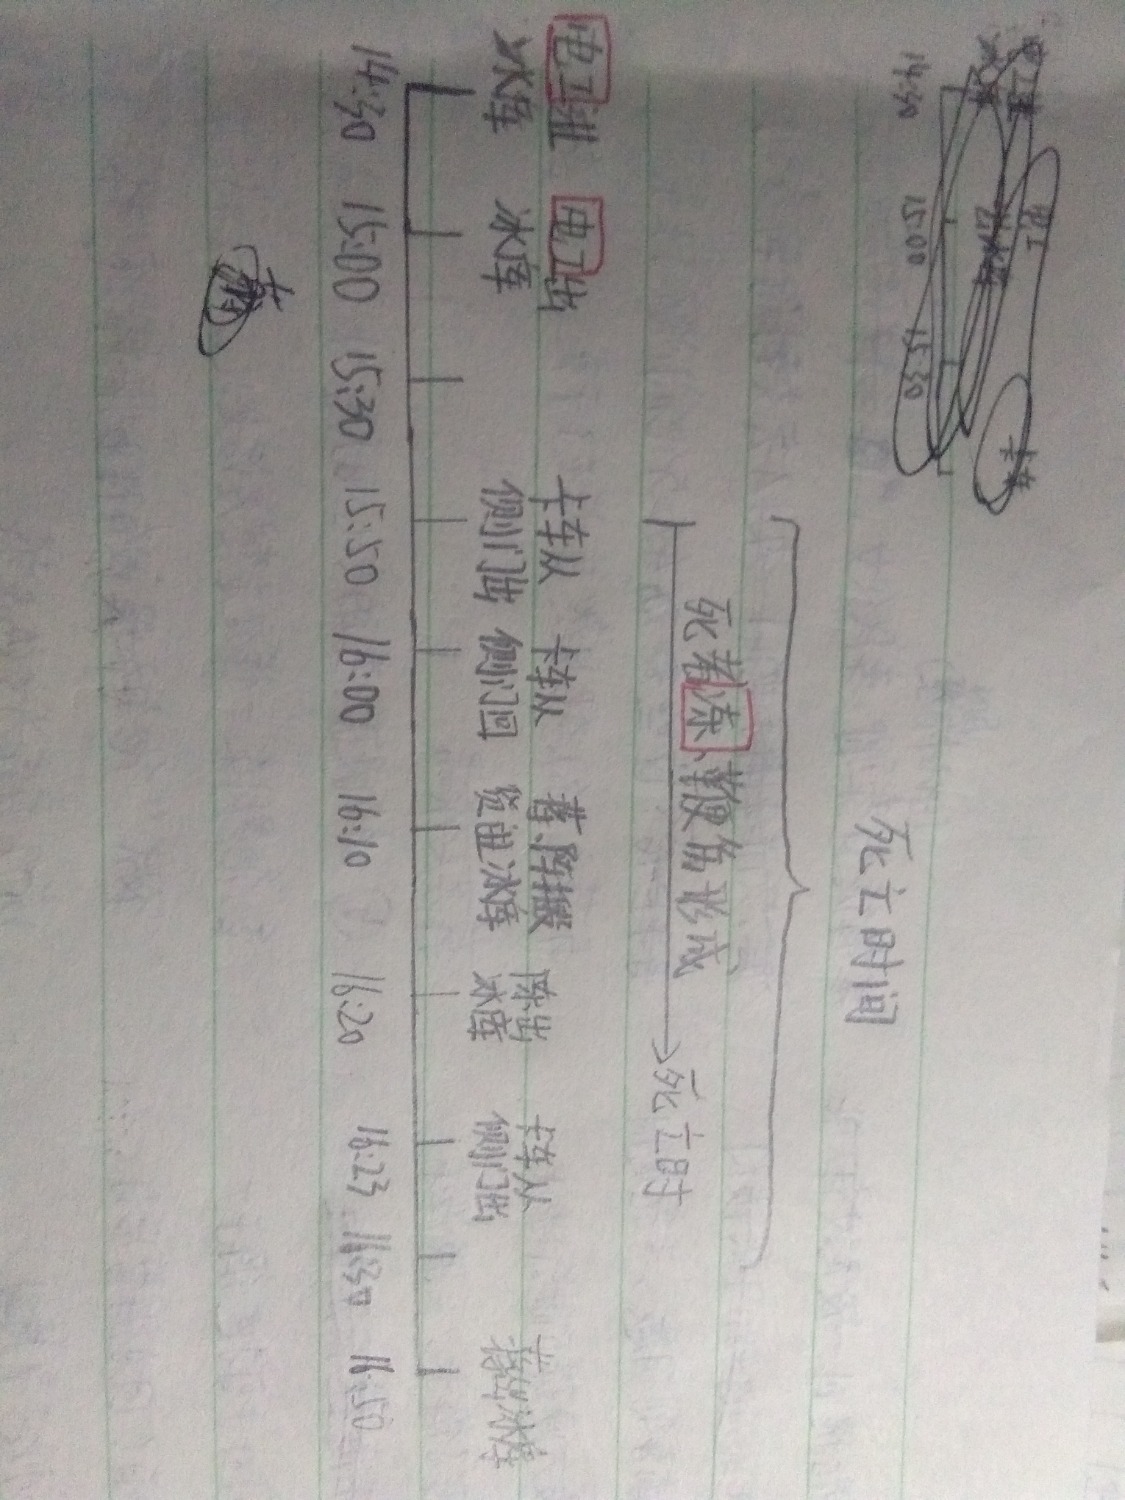 14:30
15:00
15:30
死亡时间
死者冻、鞭伤形成
死亡时
电工进
冰库
电工出
冰库
卡车从
侧门出
卡车从
侧门回
蒋、陈搬
货进冰库
陈出
冰库
卡车从
侧门出
蒋出冰库
14:30 15:00 15:30 15:50 16:00 16:10 16:20 16:23 16:30 16:50